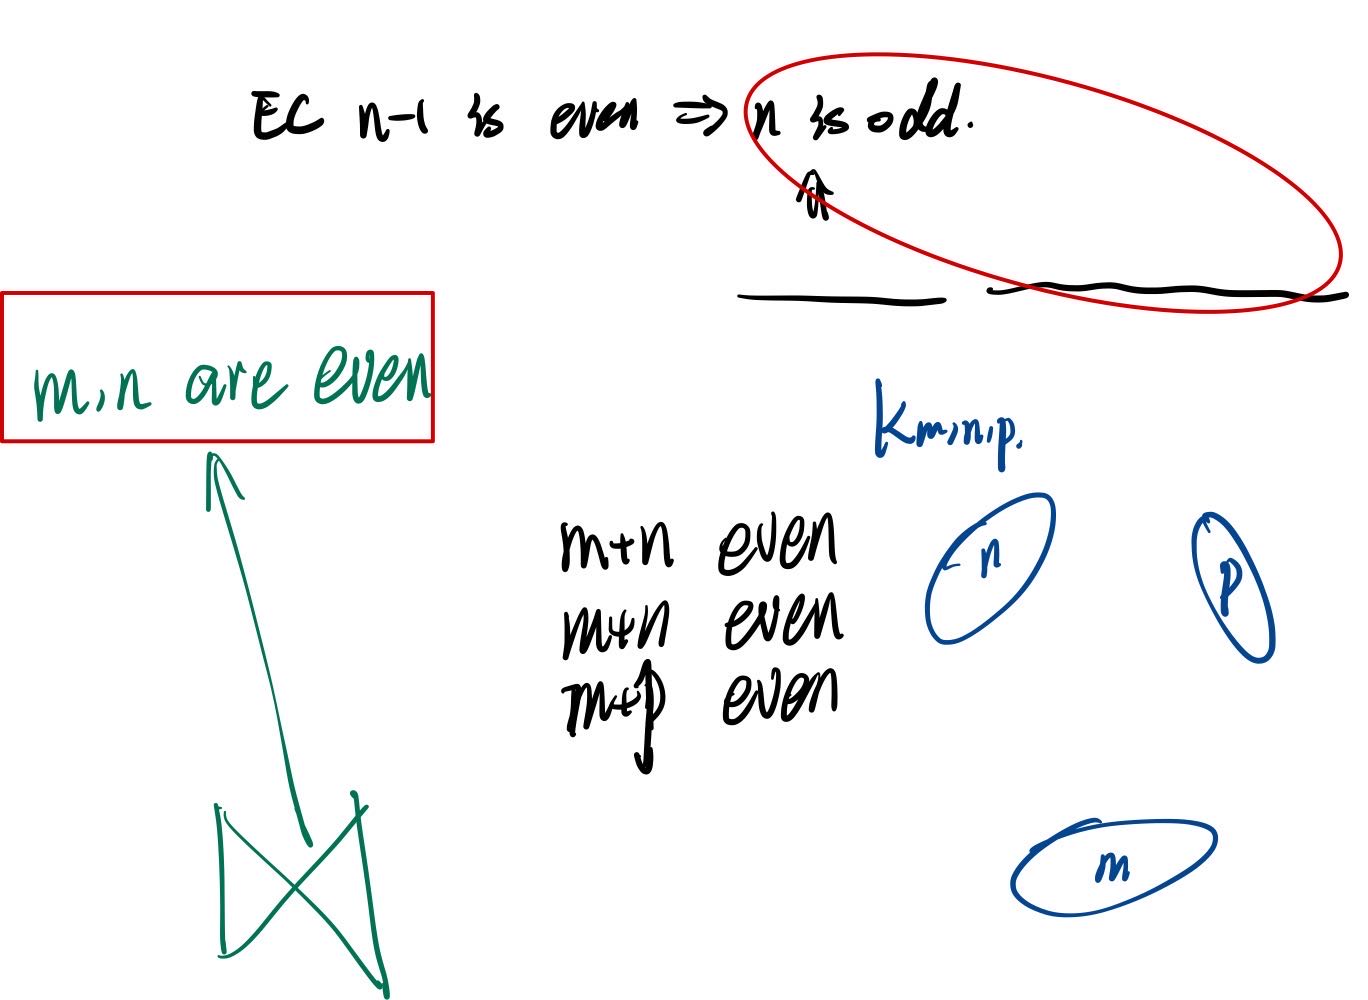 EC n-1 is even ⇒ n is odd.
m,n are even
Km,n,p.
m+n even
m+n even
m+p even
n
p
m